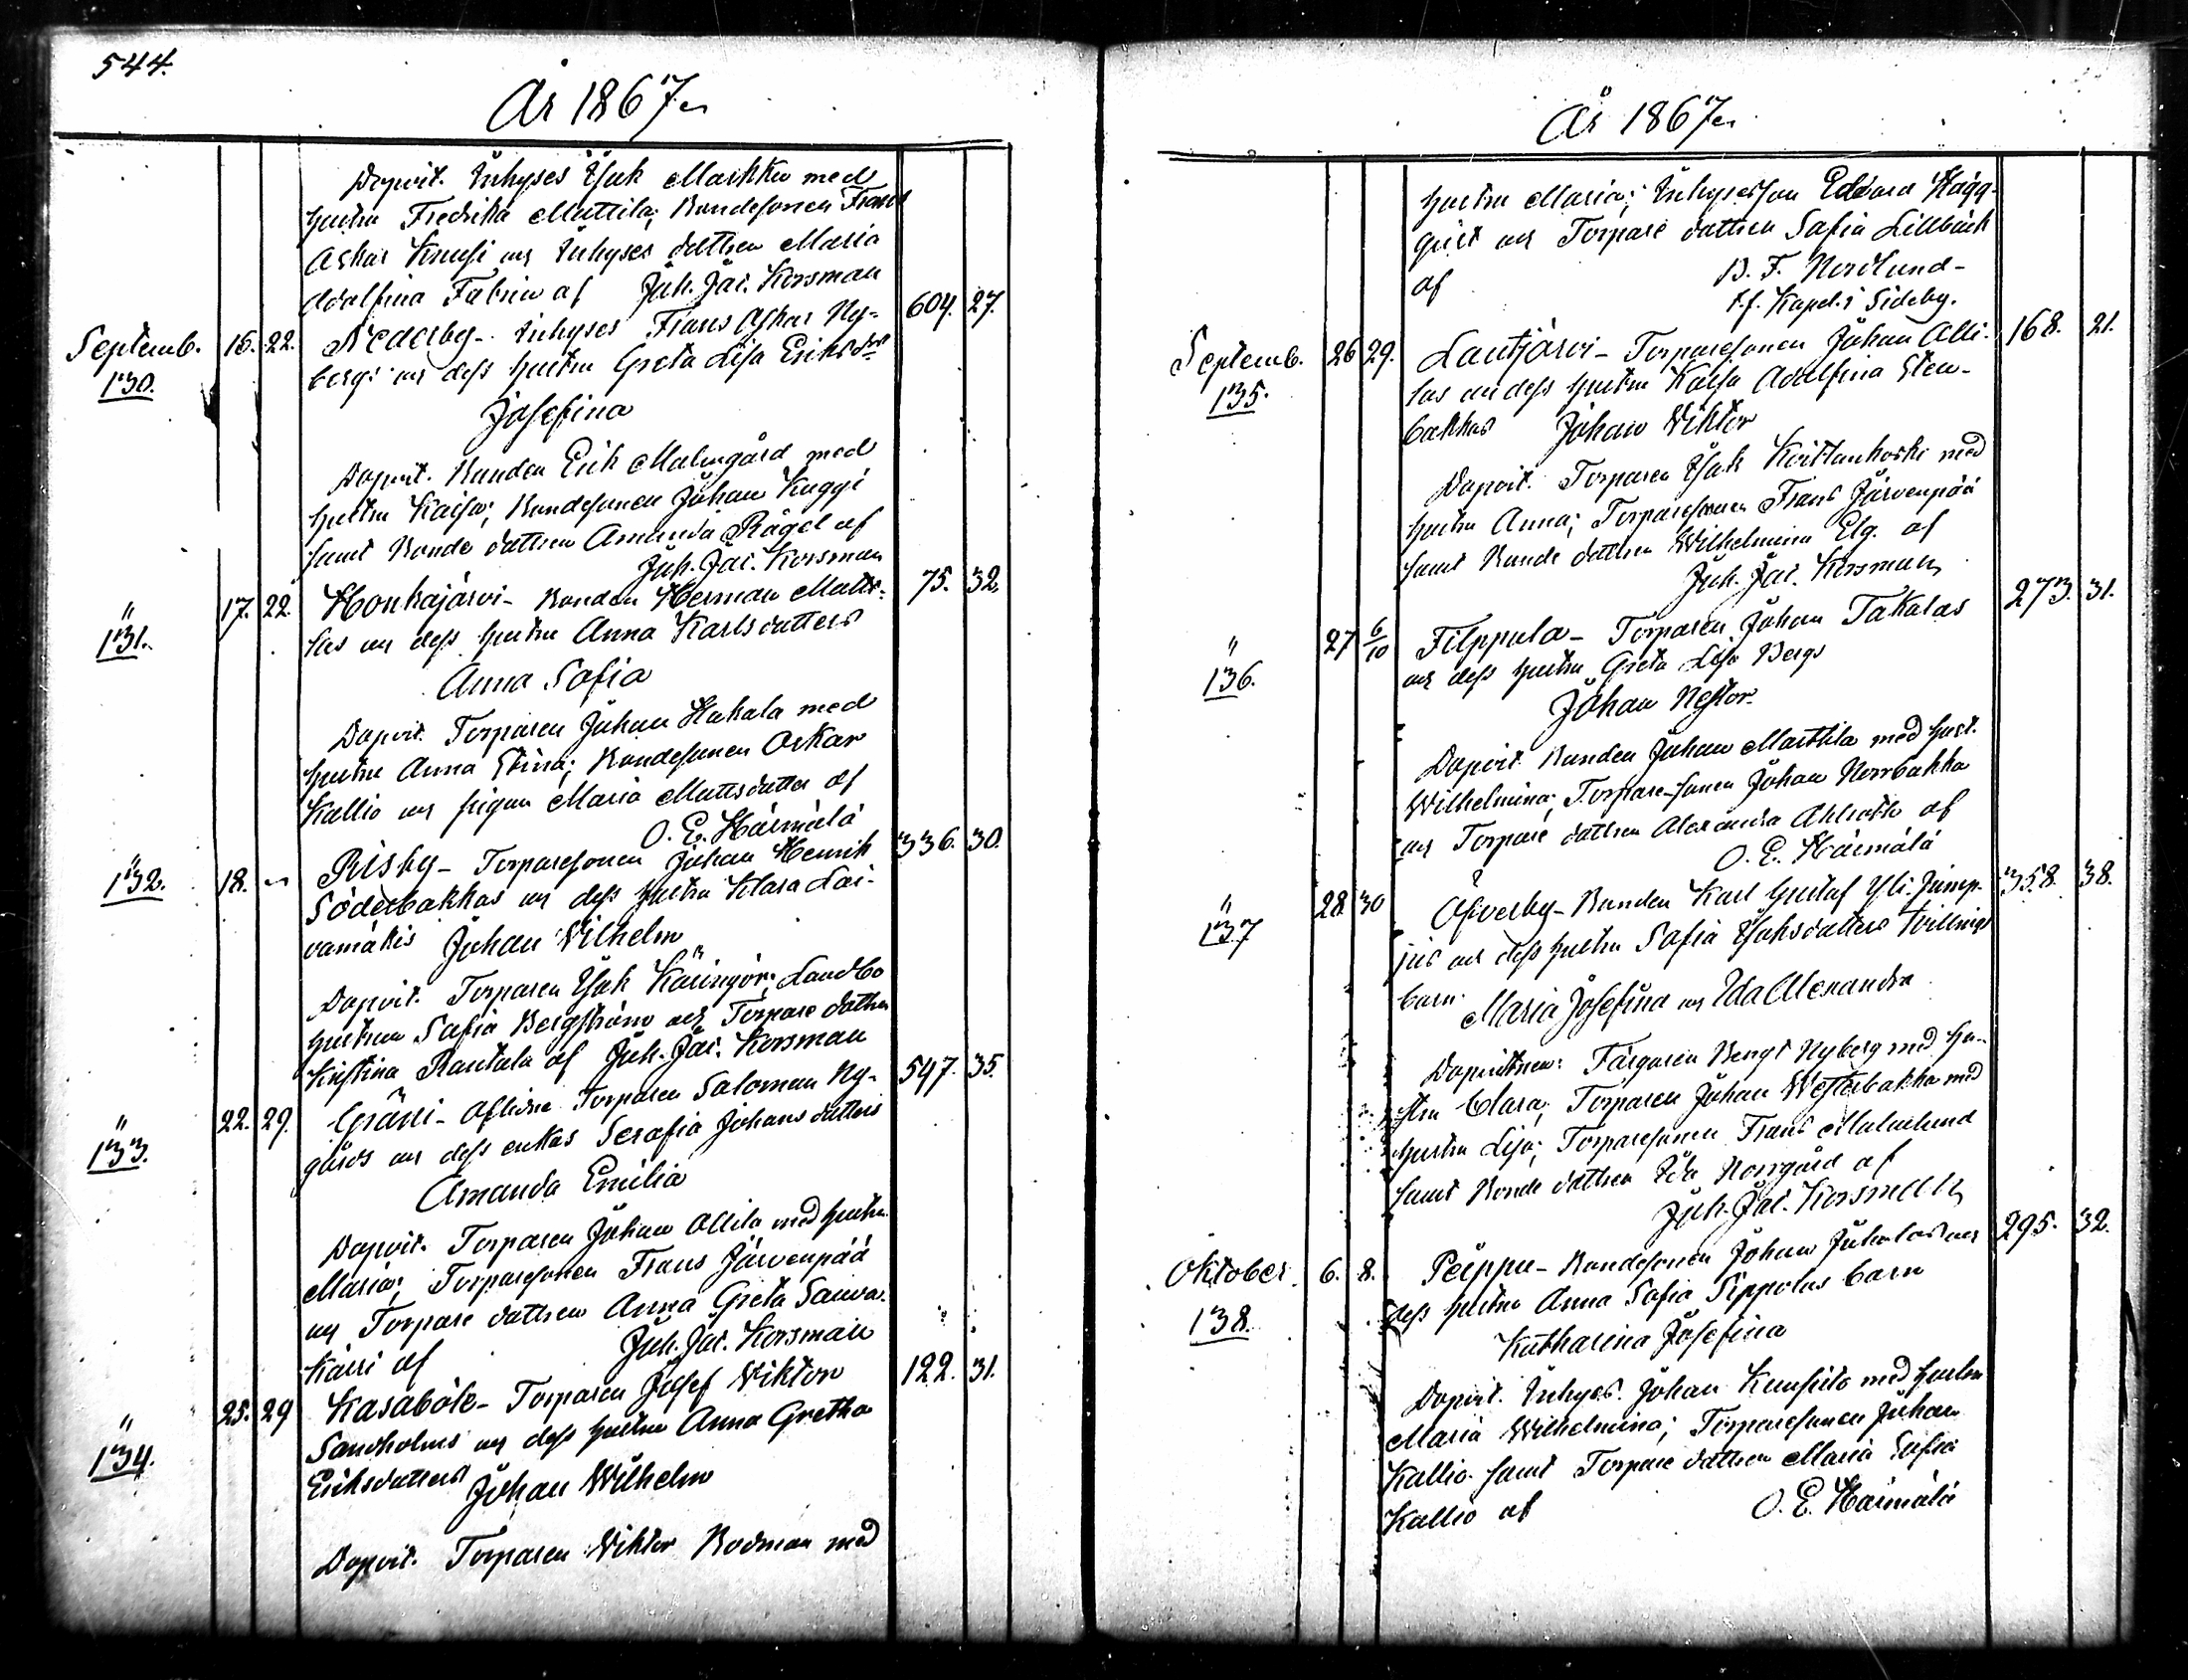 544.
År 1867
Dopvit. Inhyses Isak Markku med
hustru Fredrika Mattila; Bondesonen Frans
Oskar Knusi och Inhyses dottren Maria
Adolfina Fabrin af Joh. Jac. Korsman
Septemb. 130. 16. 22. Nederby - Inhyses Frans Oskar Ny- 604. 27.
bergs och dess hustru Greta Lisa Eriksdrs
Josefina
Dopvit. Bonden Erik Malmgård med
hustru Kaisa; Bondesonen Johan Knggi
samt Bonde dottren Amanda Rågel af
Joh. Jac. Korsman
" 131. 17. 22. Honkajärvi - Bonden Herman Matti- 75. 32.
las och dess hustru Anna Karlsdotters
Anna Sofia
Dopvit. Torparen Johan Hakala med
hustru Anna Stina; Bondesonen Oskar
Kallio och pigan Maria Mattsdotter af
O. E. Härmälä
" 132. 18. " Risby - Torparesonen Johan Henrik 336. 30.
Söderbakkas och dess hustru Klara Lai-
vamäkis Johan Wilhelm
Dopvit. Torparen Isak Käringör; Landbo
hustrun Sofia Bergström och Torpare dottren
Kristina Rautala af Joh. Jac. Korsman
" 133. 22. 29. Gräsi - Aflidne Torparen Salomon Ny- 547. 35.
gårds och dess enkas Serafia Johansdotters
Amanda Emilia
Dopvit. Torparen Johan Ollila med hustru
Maria; Torparesonen Frans Järvenpää
och Torpare dottren Anna Greta Sauva-
kärri af Joh. Jac. Korsman
" 134. 25. 29 Kasaböle - Torparen Josef Viktor 122. 31.
Sandholms och dess hustru Anna Gretha
Eriksdotters Johan Wilhelm
Dopvit. Torparen Viktor Rodman med
År 1867
hustru Maria; Inhysesson Edvard Hägg-
qvist och Torpare dottren Sofia Lillbäck
af B. F. Nordlund -
t.f. Kapel. i Sideby.
Septemb. 135. 26 29. Lautjärvi - Torparesonen Johan Olli- 168. 21.
las och dess hustru Kaisa Adolfina Sten-
bakkas Johan Viktor
Dopvit. Torparen Isak Koittankoski med
hustru Anna; Torparesonen Frans Järvenpää
samt Bonde dottren Wilhelmina Elg. af
Joh. Jac. Korsman
" 136. 27 6/10 Filppula - Torparen Johan Takalas 273. 31.
och dess hustru Greta Lisa Bergs
Johan Nestor.
Dopvit. Bonden Johan Marttila med hust.
Wilhelmina; Torpare-sonen Johan Norrbakka
och Torpare dottren Alexandra Ahlroth af
O. E. Härmälä
" 137 28. 30 Öfverby - Bonden Karl Gustaf Yli-Jump- 358. 38.
pis och dess hustru Sofia Isaksdotters tvillings
barn Maria Josefina och Ida Alexandra
Dopvittnen: Färgaren Bengt Nyberg med hu-
stru Clara; Torparen Johan Westerbakka med
hustru Lisa; Torparesonen Frans Malmlund
samt Bonde dottren Ida Norrgård af
Joh. Jac. Korsman
Oktober 138. 6. 8. Peippu - Bondesonen Johan Juholas och 295. 32.
dess hustru Anna Sofia Sippolas barn
Katharina Josefina
Dopvit. Inhyses. Johan Kunsito med hustru
Maria Wilhelmina; Torparesonen Johan
Kallio samt Torpare dottren Maria Sofia
Kallio af O. E. Härmälä